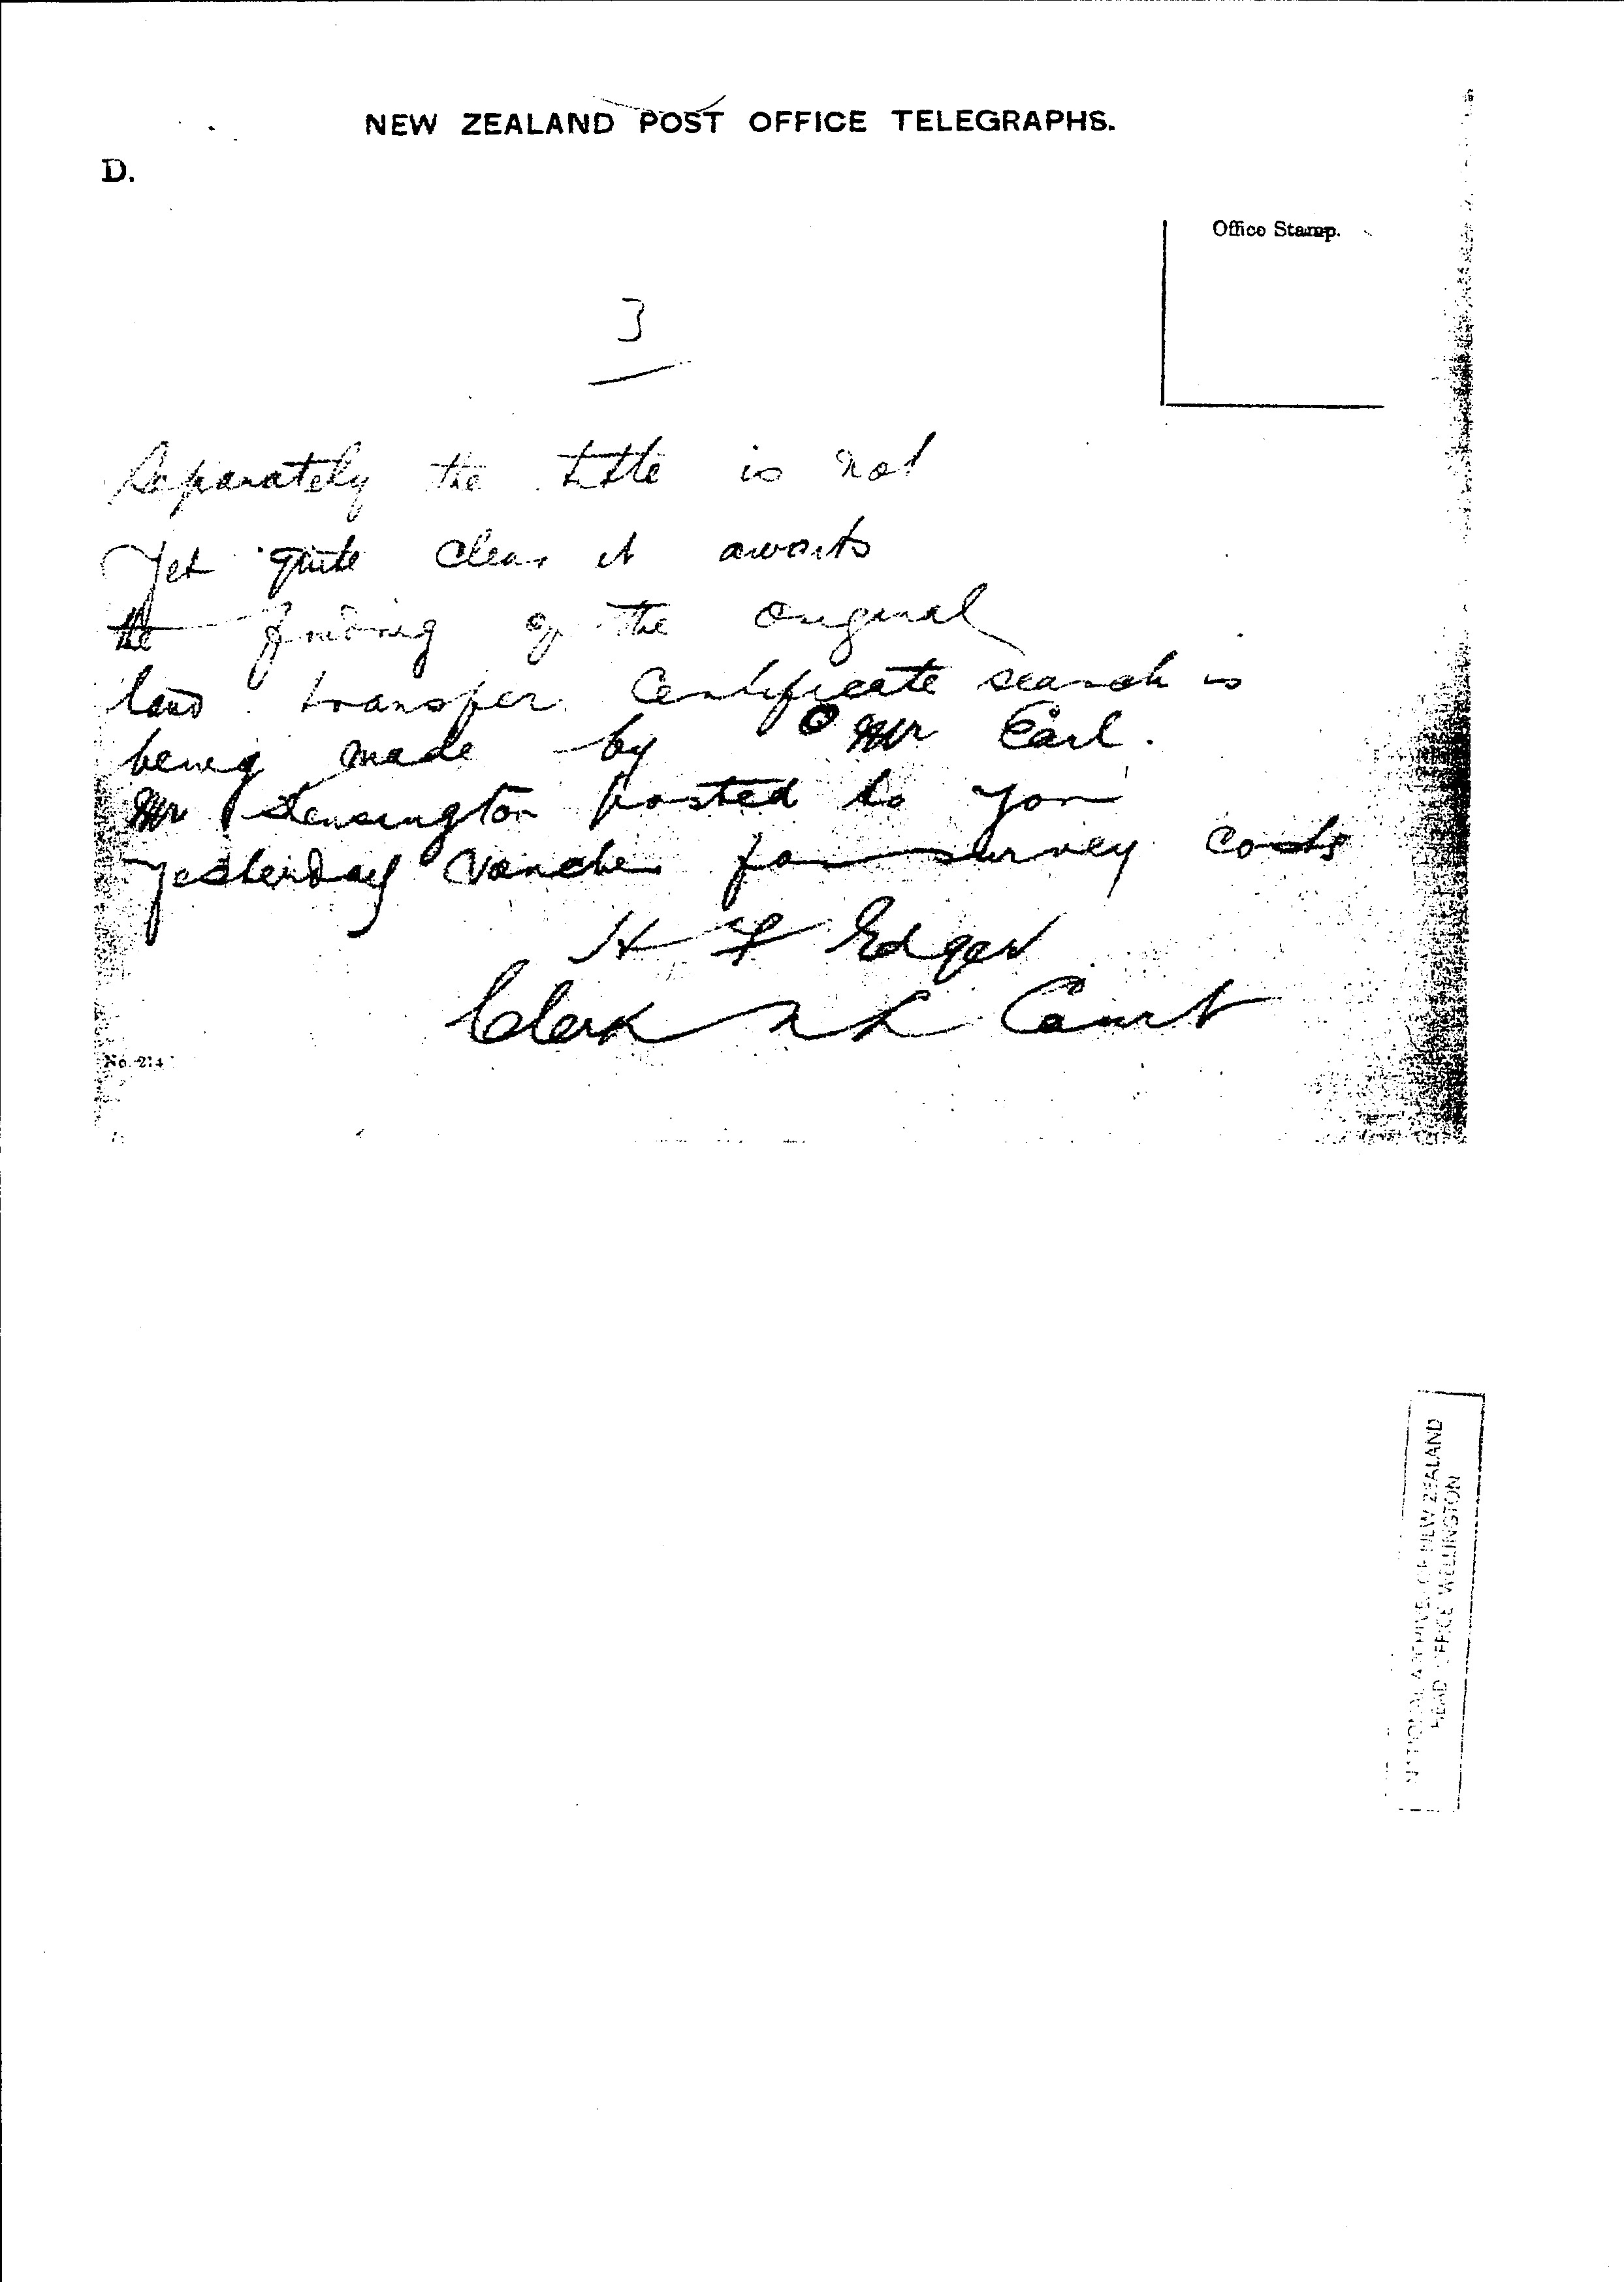 NEW ZEALAND POST OFFICE TELEGRAPHS.
D.
Office Stamp.
3
Separately the title is not
yet quite clear it awaits
the finding of the original
land transfer Certificate search is
being made by Mr Earl.
Mr Kensington posted to you
yesterday voucher for survey costs
H F Edger
Clerk N L Court
No. 214
NATIONAL ARCHIVES OF NEW ZEALAND
HEAD OFFICE WELLINGTON